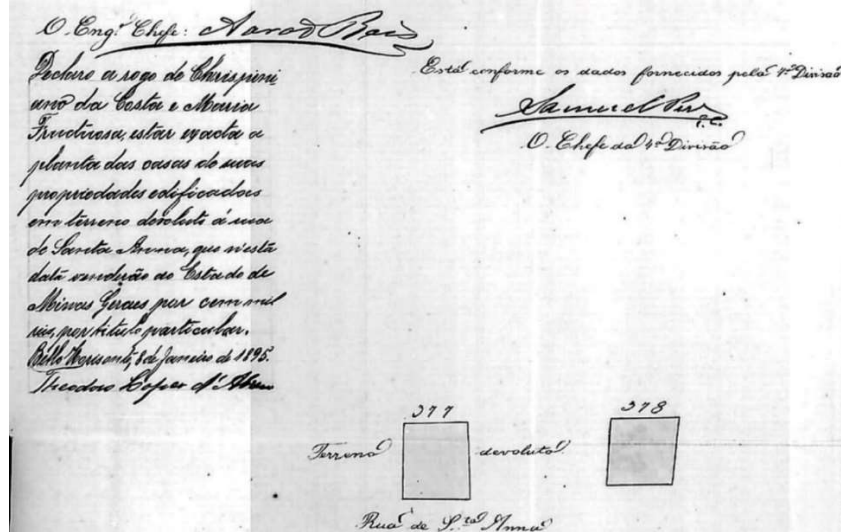 O Eng.º Chefe: Aarão Reis
Declaro a rogo de Chrispini
ano da Costa e Maria
Fructuosa, estar exacta a
planta das casas de suas
propriedades edificadas
em terreno devoluto á rua
de Santa Anna, que n'esta
data venderão ao Estado de
Minas Geraes por cem mil
reis, por titulo particular.
Bello Horisonte, 8 de Janeiro de 1895.
Theodoro Lopes d'Abreu
Está conforme os dados fornecidos pela 4ª Divisão
Samuel
O Chefe da 4ª Divisão
377
378
Terreno devoluto
Rua de S.ta Anna